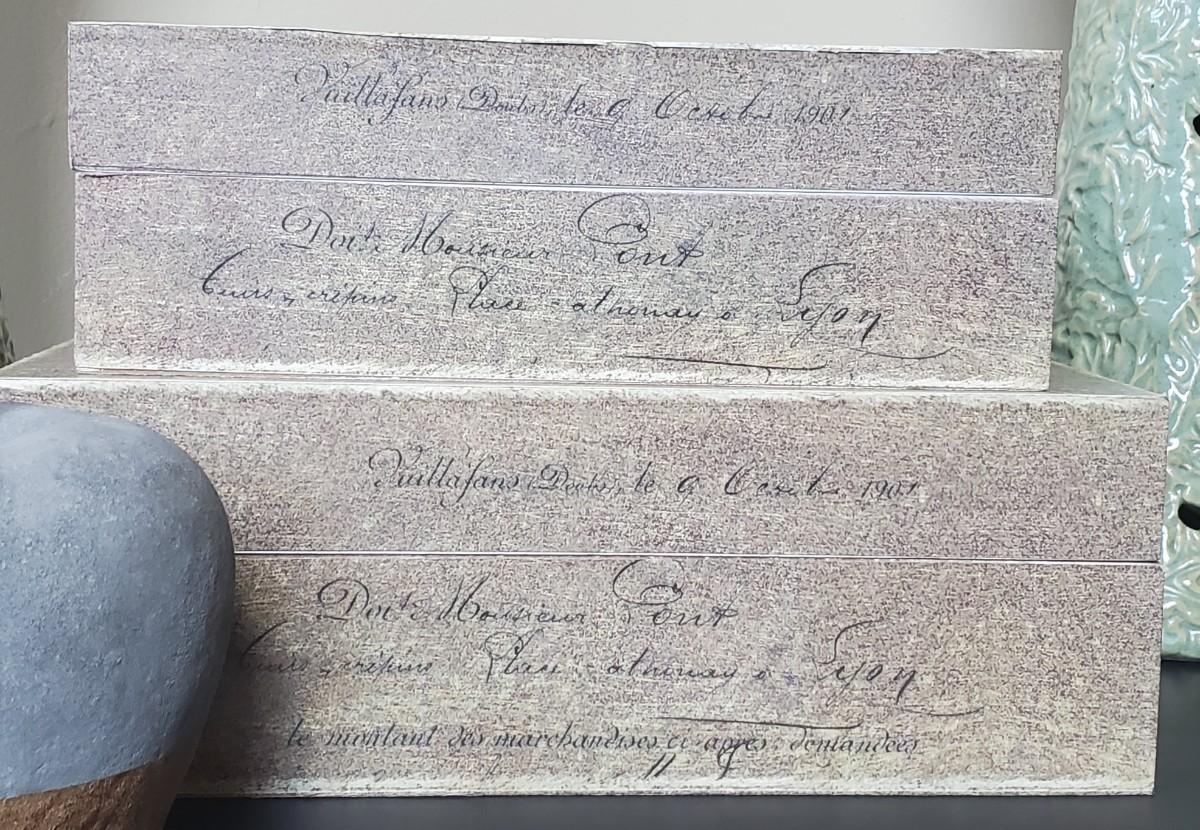 Vuillafans (Doubs), le 9 Octobre 1901
Doit Monsieur Pont
Cuirs & crépins Place athenay à Lyon
Vuillafans (Doubs), le 9 Octobre 1901
Doit Monsieur Pont
Cuirs & crépins Place athenay à Lyon
le montant des marchandises ci-après demandées